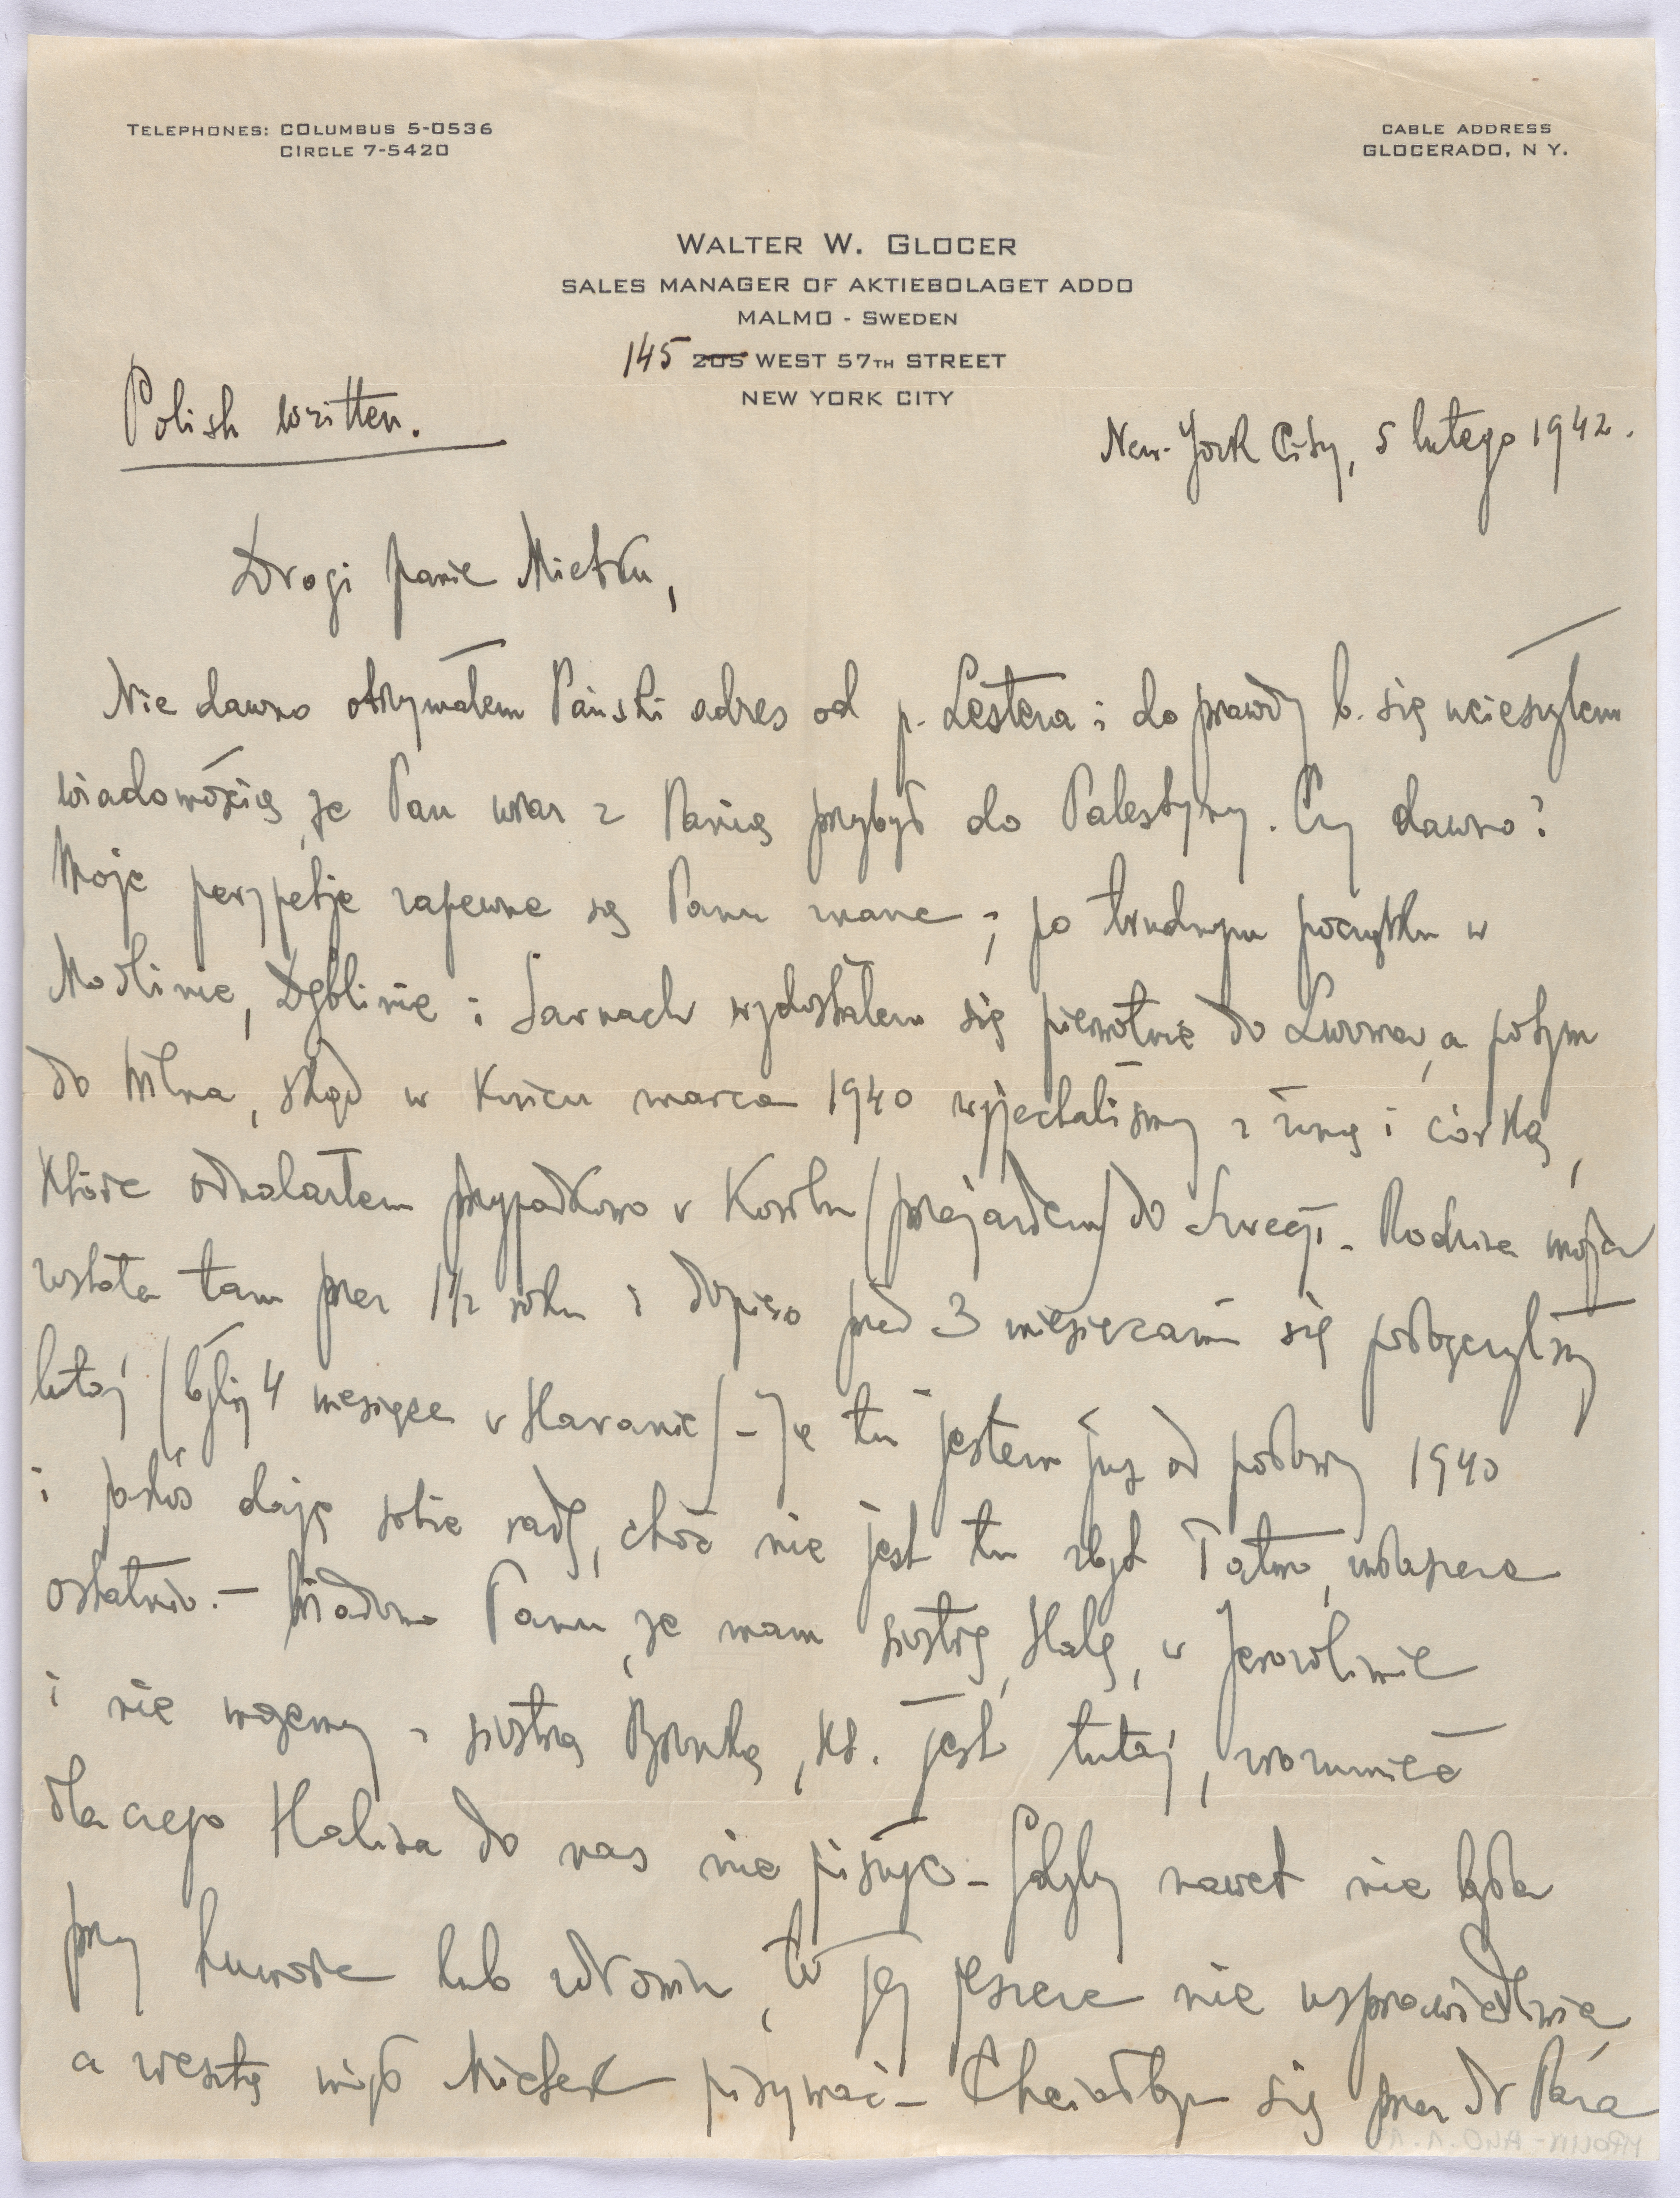 TELEPHONES: COLUMBUS 5-0536
CIRCLE 7-5420
CABLE ADDRESS
GLOCERADO, N Y.
WALTER W. GLOCER
SALES MANAGER OF AKTIEBOLAGET ADDO
MALMO - SWEDEN
145 205 WEST 57TH STREET
NEW YORK CITY
Polish written.
New-York City, 5 lutego 1942.
Drogi panie Mietku,
Nie dawno otrzymałem Pański adres od p. Lestera i do prawdy b. się ucieszyłem
wiadomością, że Pan wraz z Panią przybył do Palestyny. Czy dawno?
Moje perypetje zapewne są Panu znane; po trudnym początku w
Modlinie, Dęblinie i Sarnach wydostałem się pierwotnie do Lwowa, a potym
do Wilna, skąd w końcu marca 1940 wyjechaliśmy z żoną i córką,
które odnalazłem przypadkowo w Kowlu (przejazdem) do Szwecji. Rodzina moja
została tam przez 1½ roku i dopiero przed 3 miesiącami się połączyliśmy
tutaj (byliśmy 4 miesiące w Havanie) - Ja tu jestem już od połowy 1940
i jakoś daję sobie radę, choć nie jest tu zbyt łatwo, zwłaszcza
ostatnio. - Wiadomo Panu, że mam siostrę, Halę, w Jerozolimie
i nie możemy z siostrą Bronką, kt. jest tutaj, zrozumieć
dla czego Halina do nas nie pisuje - Gdyby nawet nie była
przy humorze lub zdrowiu, to jej jeszcze nie usprawiedliwia,
a zresztą mógł Mietek pisywać - Chciałbym się przez dr Pana